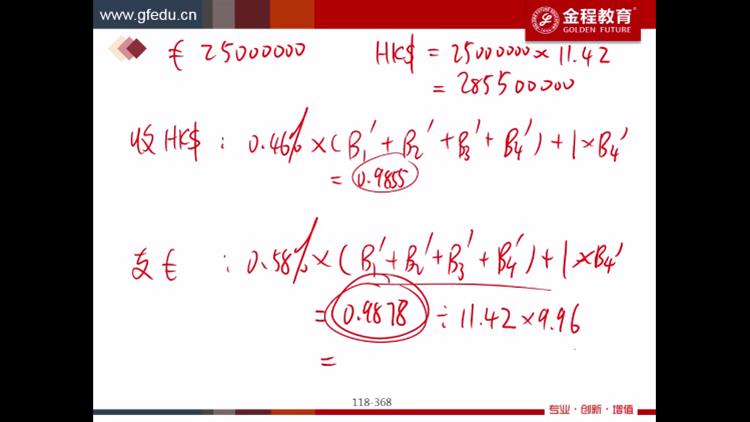 www.gfedu.cn
金程教育
GOLDEN FUTURE
€ 25000000 HK$ = 25000000 × 11.42
= 285500000
收HK$ : 0.46% × (B₁' + B₂' + B₃' + B₄') + 1×B₄'
= 0.9855
支€ : 0.58% × (B₁' + B₂' + B₃' + B₄') + 1×B₄'
= 0.9878 ÷ 11.42 × 9.96
=
118-368
专业·创新·增值